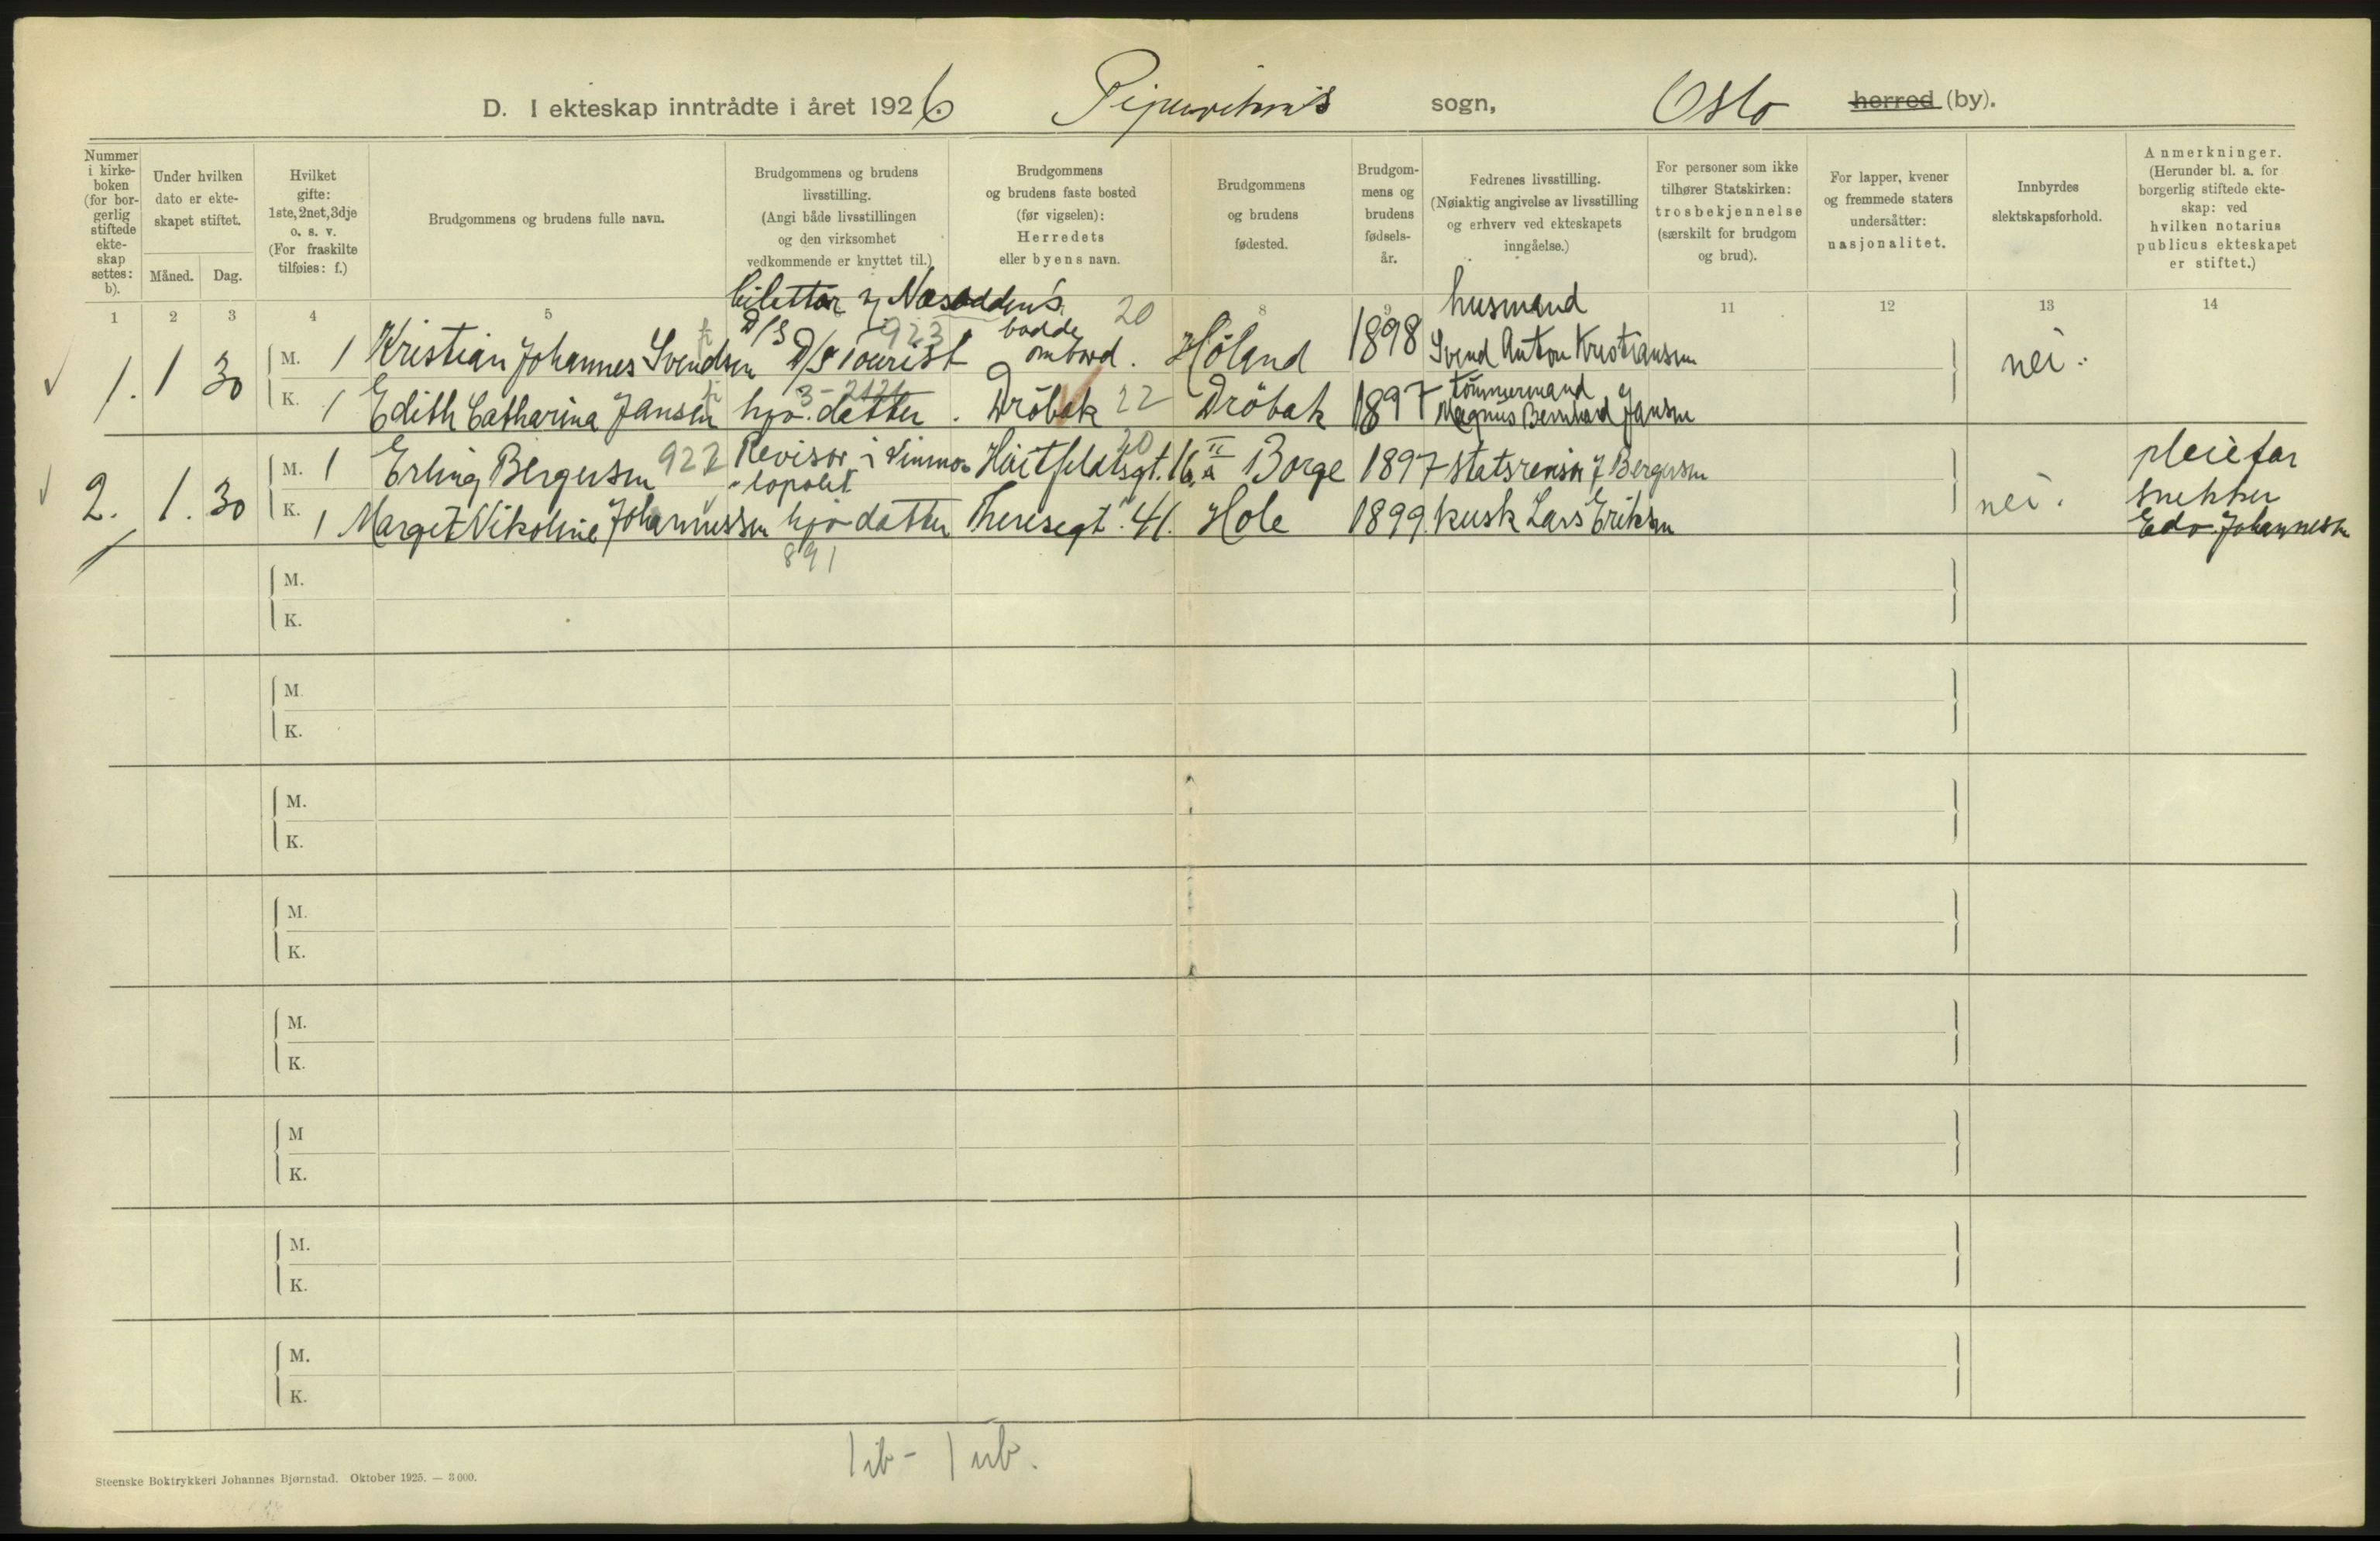 D. I ekteskap inntrådte i året 1926. Pipervikens sogn, Oslo herred (by).
Nummer i kirke-boken (for bor-gerlig stiftede ekte-skap settes: b).
Under hvilken dato er ekte-skapet stiftet.
Måned. Dag.
Hvilket gifte: 1ste, 2net, 3dje o. s. v. (For fraskilte tilføies: f.)
Brudgommens og brudens fulle navn.
Brudgommens og brudens livsstilling. (Angi både livsstillingen og den virksomhet vedkommende er knyttet til.)
Brudgommens og brudens faste bosted (før vigselen): Herredets eller byens navn.
Brudgommens og brudens fødested.
Brudgom-mens og brudens fødsels-år.
Fedrenes livsstilling. (Nøiaktig angivelse av livsstilling og erhverv ved ekteskapets inngåelse.)
For personer som ikke tilhører Statskirken: trosbekjennelse (særskilt for brudgom og brud).
For lapper, kvener og fremmede staters undersåtter: nasjonalitet.
Innbyrdes slektskapsforhold.
Anmerkninger. (Herunder bl. a. for borgerlig stiftede ekte-skap: ved hvilken notarius publicus ekteskapet er stiftet.)
1 2 3 4 5 8 9 11 12 13 14
billettør Nesoddens husmand
D/S 923 bodde 20
1. 1 30 M. 1 Kristian Johannes Svendsen D/S Tourist ombord. Höland 1898 Svend Anton Kristiansen nei.
3-2121 tömmermand
K. 1 Edith Catharina Jansen hjv. datter. Dröbak 22 Dröbak 1897 Magnus Bernhard Jansen
M. 1 Erling Bergersen 922 Revisor i Vinmo- Huitfeldtsgt. 16 a II 20 Borge 1897 statsrevisor J Bergersen pleiefar
nopolet
2. 1. 30 K. 1 Margit Nikoline Johannessen hjv datter Theresegt. 41. Hole 1899. kusk Lars Eriksen nei. snekker
Edv. Johannesen
891
M.
K.
M.
K.
M.
K.
M.
K.
M.
K.
M
K.
M.
K.
M.
K.
1 ib - 1 ub.
Steenske Boktrykkeri Johannes Bjørnstad. Oktober 1925. — 3 000.